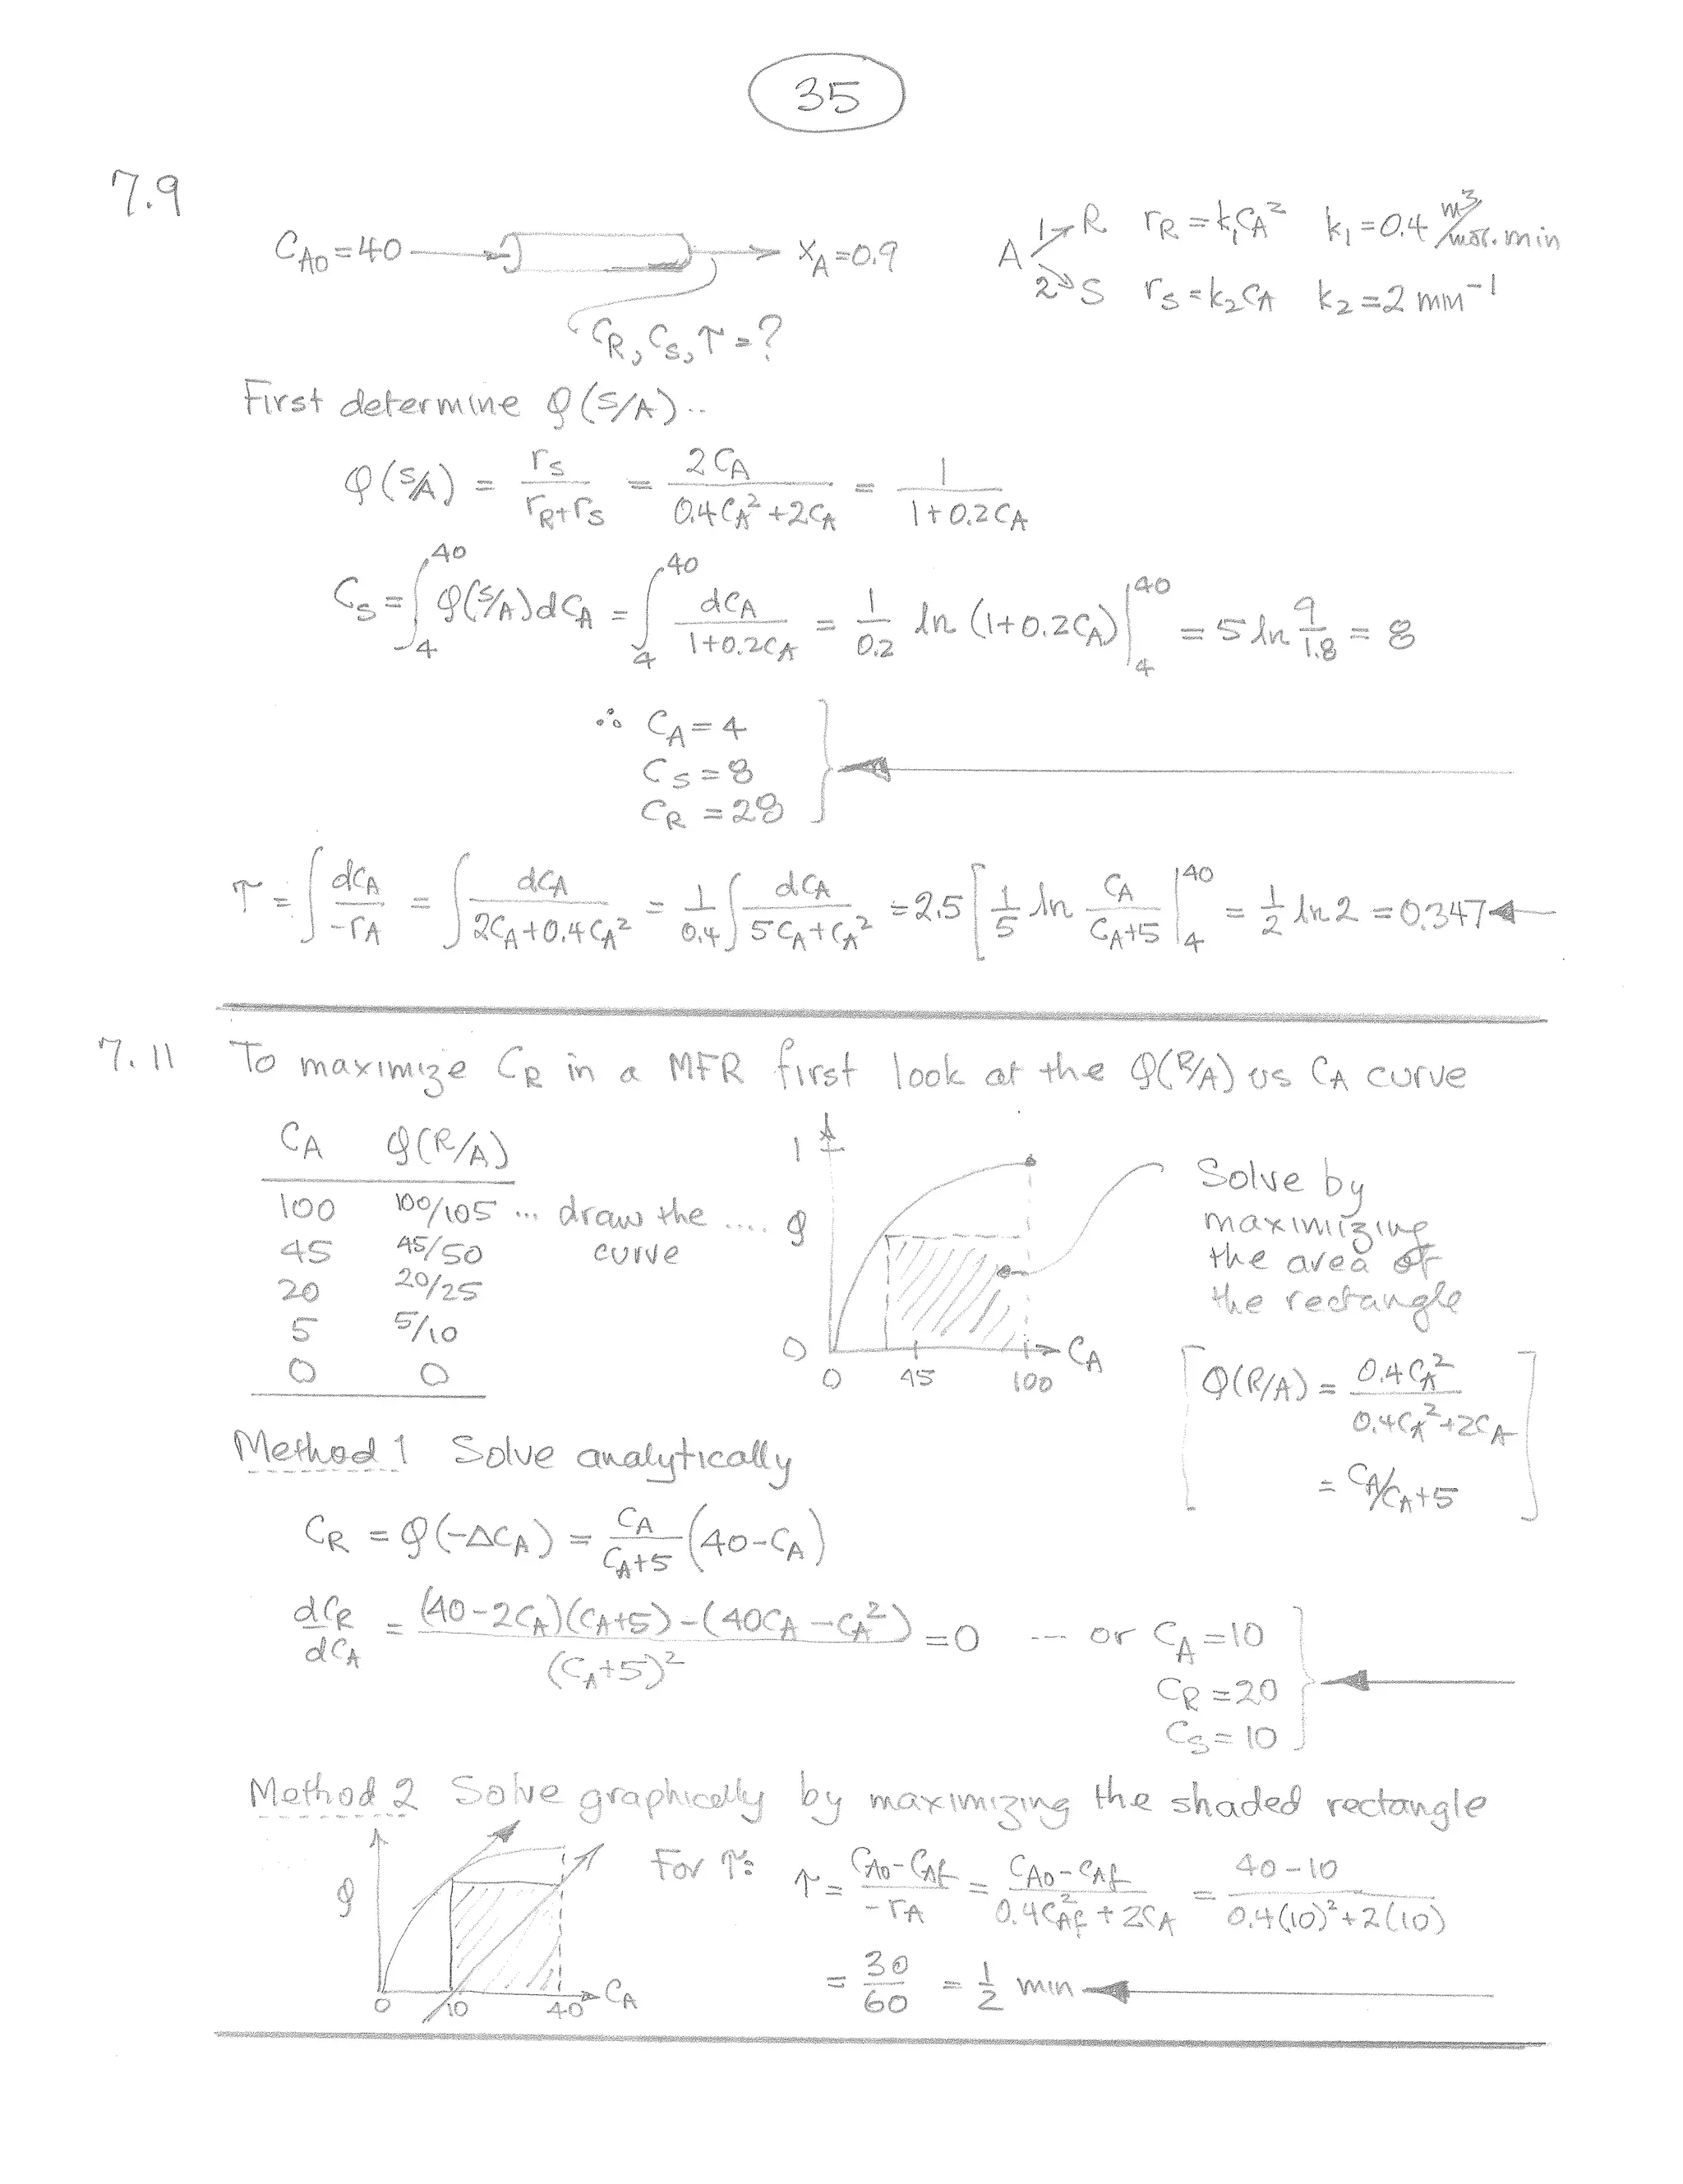 35
7.9
C_A0 = 40 → X_A = 0.9
C_R, C_S, τ = ?
A 1→ R r_R = k_1 C_A^2 k_1 = 0.4 m^3/mol·min
2→ S r_S = k_2 C_A k_2 = 2 min^-1
First determine φ(S/A)..
φ(S/A) = r_S/(r_R + r_S) = 2C_A/(0.4C_A^2 + 2C_A) = 1/(1 + 0.2C_A)
C_S = ∫_4^40 φ(S/A) dC_A = ∫_4^40 dC_A/(1 + 0.2C_A) = 1/0.2 ln (1 + 0.2C_A)|_4^40 = 5 ln 9/1.8 = 8
∴ C_A = 4
C_S = 8
C_R = 28
τ = ∫ dC_A/-r_A = ∫ dC_A/(2C_A + 0.4C_A^2) = 1/0.4 ∫ dC_A/(5C_A + C_A^2) = 2.5 [1/5 ln C_A/(C_A+5) |_4^40 = 1/2 ln 2 = 0.347
7.11 To maximize C_R in a MFR first look at the φ(R/A) vs C_A curve
C_A φ(R/A)
100 100/105 ... draw the ....
45 45/50 curve
20 20/25
5 5/10
0 0
1
φ
0
0 45 100
C_A
Solve by
maximizing
the area of
the rectangle
[φ(R/A) = 0.4C_A^2/(0.4C_A^2 + 2C_A)
= C_A/C_A+5]
Method 1 Solve analytically
C_R = φ(-ΔC_A) = C_A/(C_A+5) (40 - C_A)
dC_R/dC_A = ((40 - 2C_A)(C_A+5) - (40C_A - C_A^2))/(C_A+5)^2 = 0 --- or C_A = 10
C_R = 20
C_S = 10
Method 2 Solve graphically by maximizing the shaded rectangle
φ
0 10 40 C_A
For τ: τ = (C_A0 - C_Af)/-r_A = (C_A0 - C_Af)/(0.4C_Af^2 + 2C_A) = (40 - 10)/(0.4(10)^2 + 2(10))
= 30/60 = 1/2 min